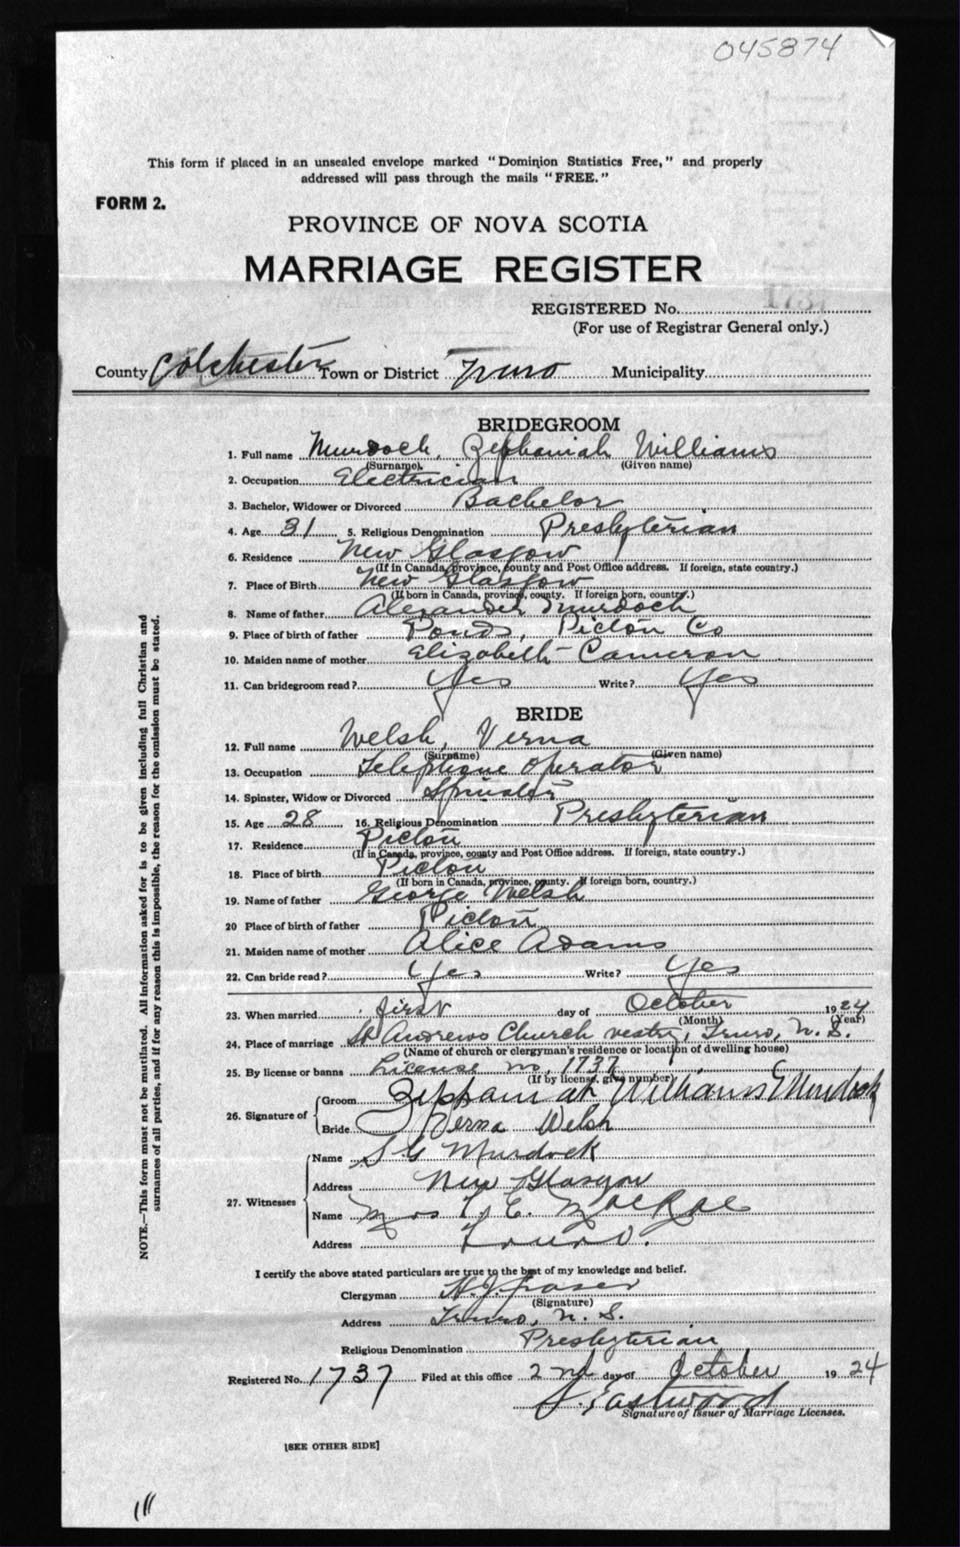 045874
This form if placed in an unsealed envelope marked "Dominion Statistics Free," and properly
addressed will pass through the mails "FREE."
FORM 2.
PROVINCE OF NOVA SCOTIA
MARRIAGE REGISTER
REGISTERED No.
(For use of Registrar General only.)
County Colchester Town or District Truro Municipality
BRIDEGROOM
1. Full name Murdoch, Zephaniah Williams
(Surname) (Given name)
2. Occupation Electrician
3. Bachelor, Widower or Divorced Bachelor
4. Age 31 5. Religious Denomination Presbyterian
6. Residence New Glasgow
(If in Canada, province, county and Post Office address. If foreign, state country.)
7. Place of Birth New Glasgow
(If born in Canada, province, county. If foreign born, country.)
8. Name of father Alexander Murdoch
9. Place of birth of father Ponds, Pictou Co
10. Maiden name of mother Elizabeth Cameron
11. Can bridegroom read? Yes Write? Yes
BRIDE
12. Full name Welsh, Verna
(Surname) (Given name)
13. Occupation Telephone Operator
14. Spinster, Widow or Divorced Spinster
15. Age 28 16. Religious Denomination Presbyterian
17. Residence Pictou
(If in Canada, province, county and Post Office address. If foreign, state country.)
18. Place of birth Pictou
(If born in Canada, province, county. If foreign born, country.)
19. Name of father George Welsh
20 Place of birth of father Pictou
21. Maiden name of mother Alice Adams
22. Can bride read? Yes Write? Yes
23. When married first day of October 1924
(Month) (Year)
24. Place of marriage St Andrews Church vestry, Truro, N. S.
(Name of church or clergyman's residence or location of dwelling house)
25. By license or banns License no, 1737
(If by license, give number)
26. Signature of Groom Zephaniah Williams Murdock
Bride Verna Welsh
27. Witnesses
Name S G Murdock
Address New Glasgow
Name Mrs E. MacRae
Address Truro.
I certify the above stated particulars are true to the best of my knowledge and belief.
Clergyman H. J. Fraser
(Signature)
Address Truro, N. S.
Religious Denomination Presbyterian
Registered No. 1737 Filed at this office 2nd day of October 1924
J. Eastwood
Signature of Issuer of Marriage Licenses.
[SEE OTHER SIDE]
NOTE.—This form must not be mutilated. All information asked for is to be given including full Christian and
surnames of all parties, and if for any reason this is impossible, the reason for the omission must be stated.